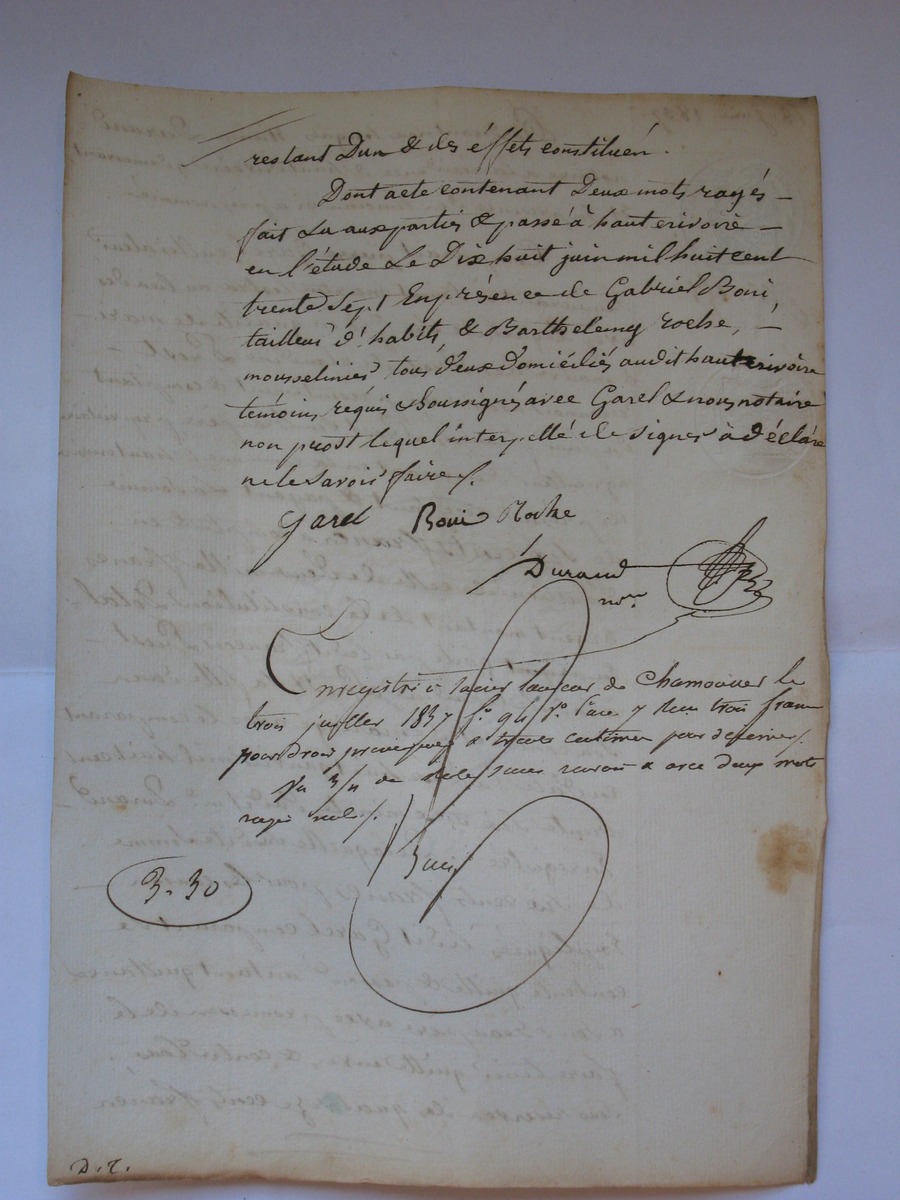 restant Dun & des éffets constitués.
Dont acte contenant Deux mots rayés
fait Lu aux parties & passé à hauterivoire
en l'étude Le Dix huit juin mil huit cent
trente Sept En présence de Gabriel Boni,
tailleur d'habits, & Barthelemy roche,
mousselinier tous deux Domiciliés audit hauterivoire
temoins réquis & Soussignés avec Garel & nous notaire
non prost lequel interpellé de signer à déclaré
ne le savoir faire /.
Garel Boni Roche
Durand
nore
Enregistré à de Chamousset le
trois juillet 1837 fo 94 Vo Case 7 Reçu trois francs
pour droit & trente centimes pour decime /.
deux mots
rayés nuls /.
3-30
D. r.